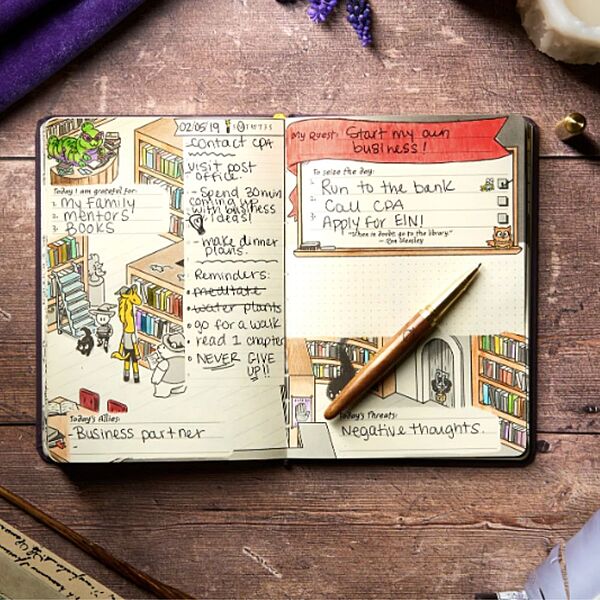 02/05/19
contact CPA
visit post
office.
- Spend 30min
coming up
with business
ideas!
- make dinner
plans.
Reminders:
• meditate
• water plants
• go for a walk
• read 1 chapter
• NEVER GIVE
UP!!
Today I am grateful for:
1. My Family
2. mentors
3. BOOKS
Today's Allies:
- Business partner
-
My Quest: Start my own
business!
To seize the day:
1. Run to the bank
2. Call CPA
3. Apply for EIN!
"When in doubt, go to the library."
- Ron Weasley
Today's Threats:
Negative thoughts.